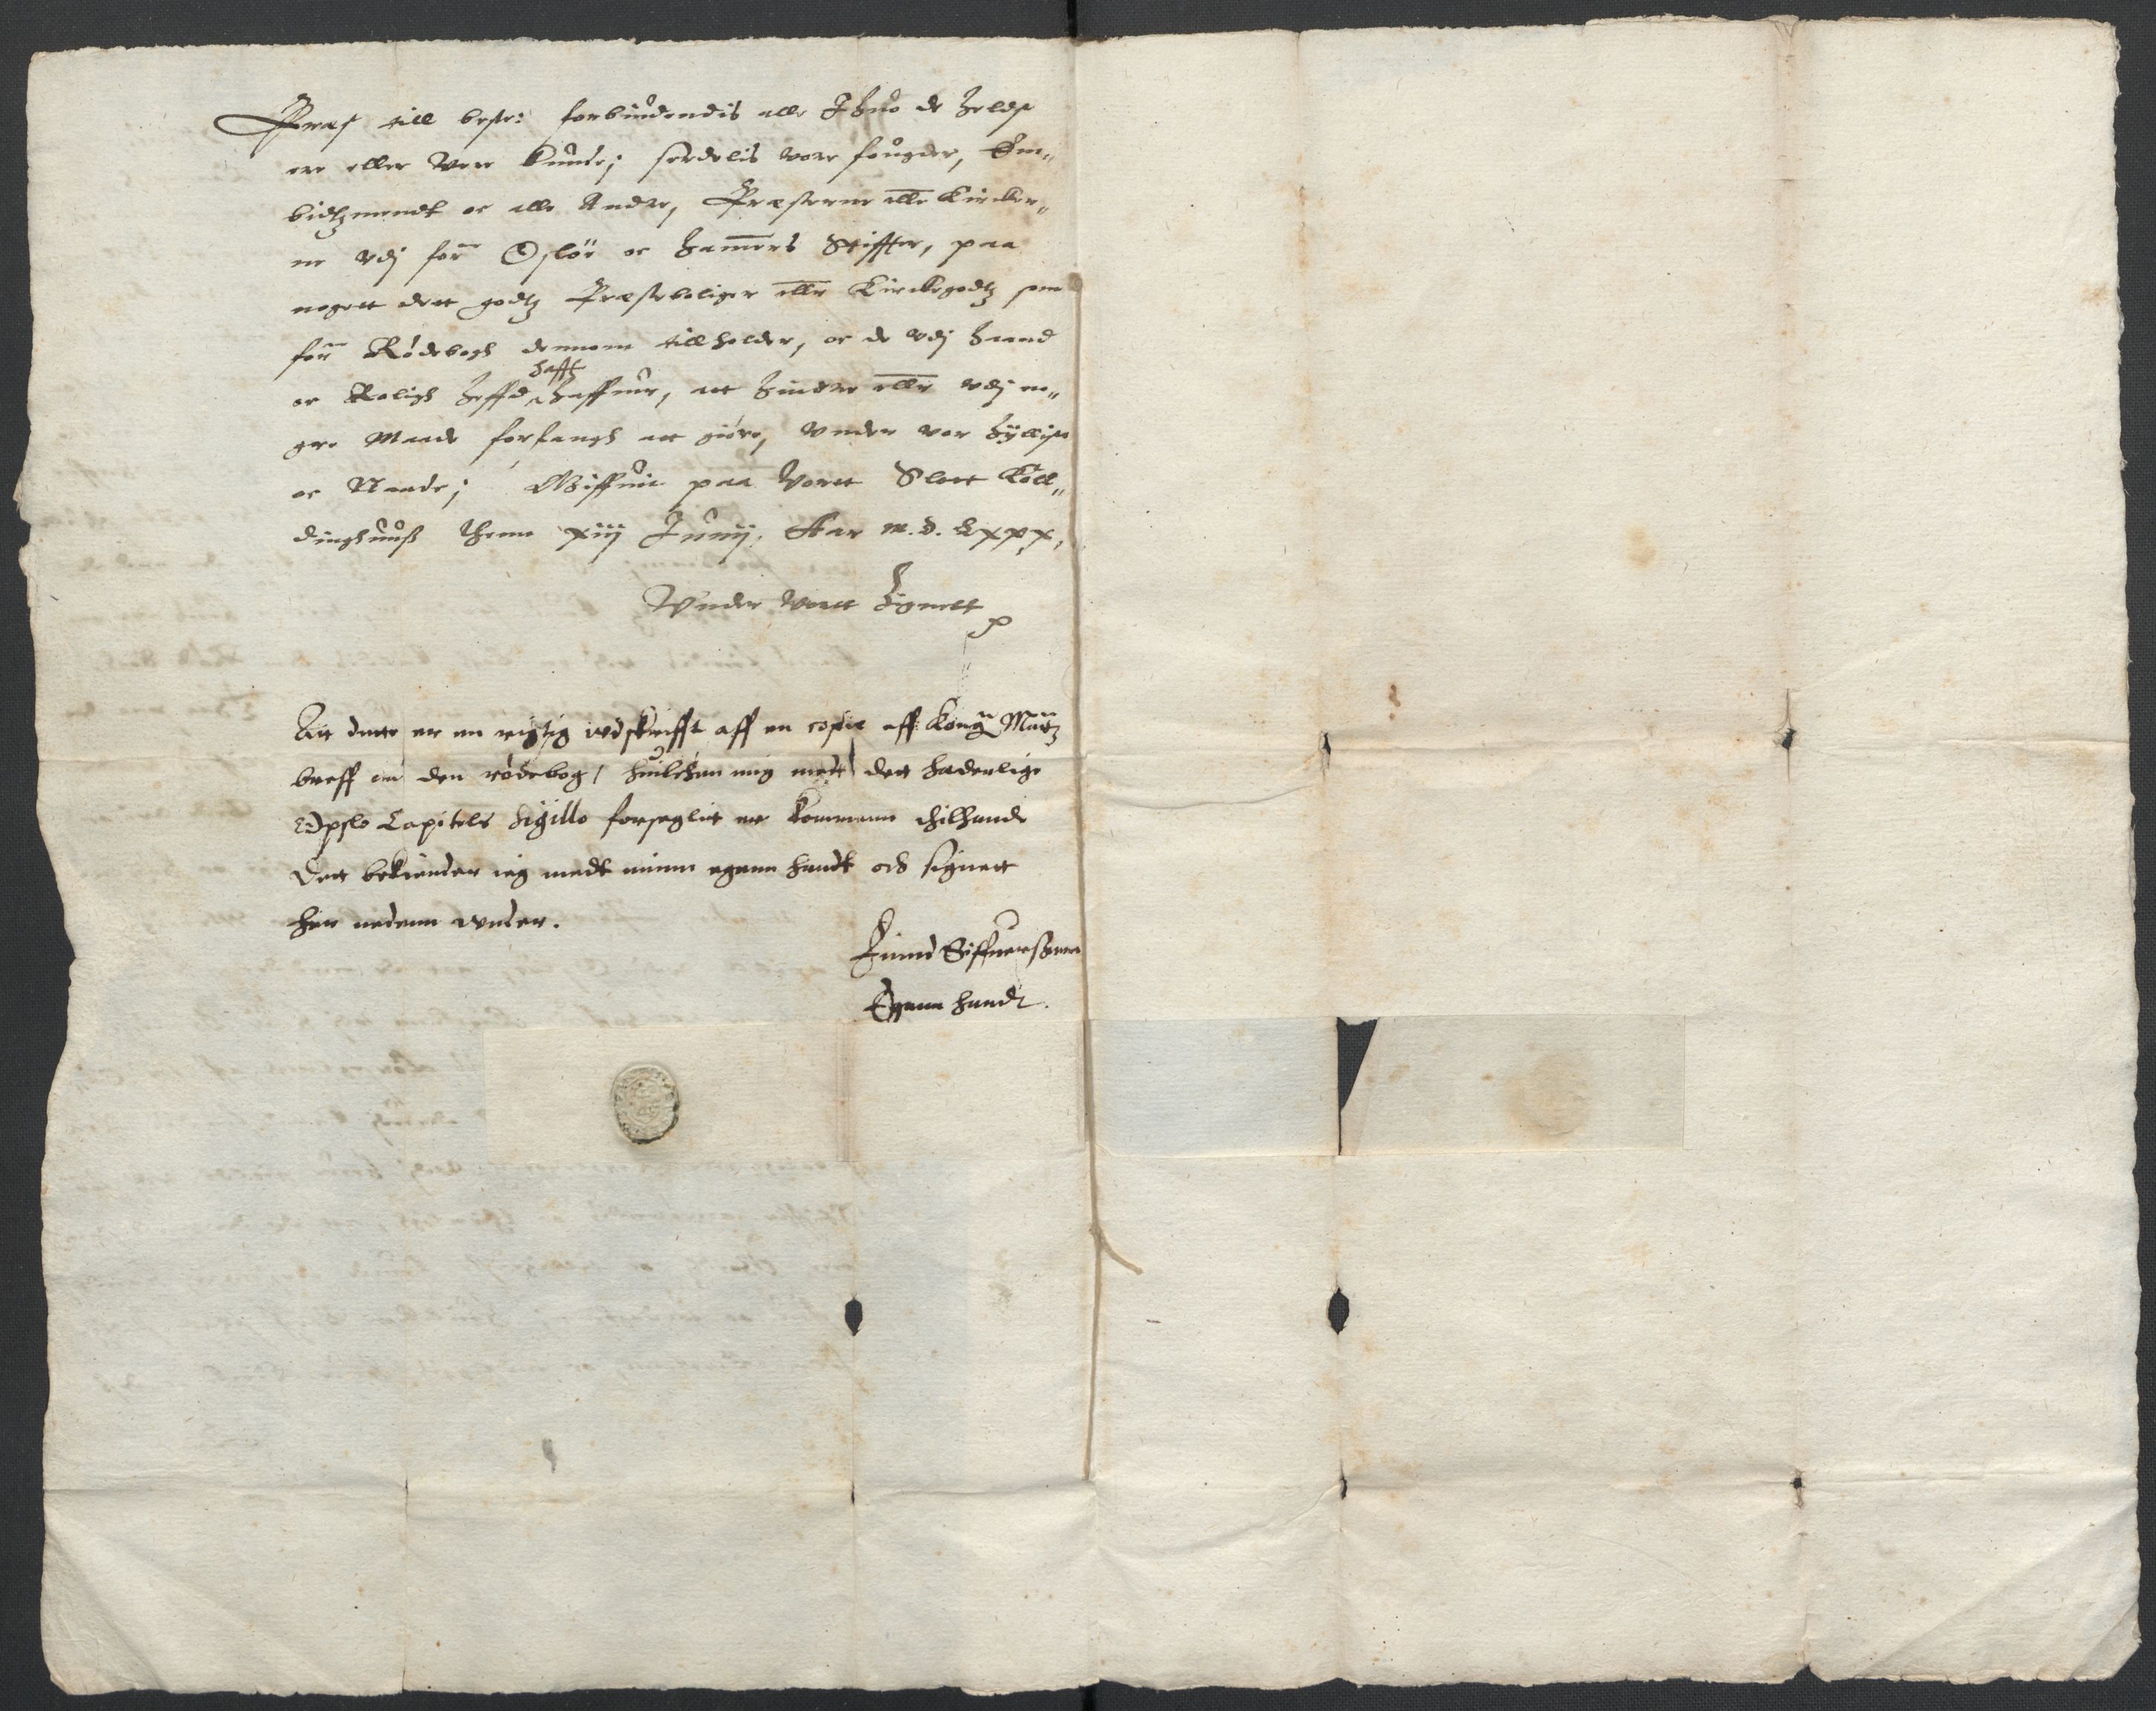 Præst till beste: forbiudendis alle Ihuo de helst
ere eller Vere kunde; serdelis vore fougder, Em„
bidtzmendt oc alle Andre, Præsterne elle Kircker„
ne vdj for̄ Osloe oc Hamers Stiffter, paa
nogett dett godtz Præsteboliger elle Kirckegodtz som
for̄ Rødebogh dennom tillholder, oc de vdj haand
oc Roligh heffd hafft haffuer, att hindre elle vdj no„
gre Maade forfangh att giøre, vnder vor hyllist
oc Naade; Giffuit paa Vortt Slott Koll„
dinghuuß thenn xiij Junij. Aar m.d. Lxxx,
Vnder Vortt Zignett
Att dette er en rigtig vdskrifft aff en copie aff Kong: Matz
breff om den rødebog / huilchen mig mett dett hæderlige
Opslo Capitels Sigillo forseglitt er kommenn thilhande
Dett bekiender ieg medt minn egenn handt och signett
her nedenn vnder.
Siffuerssenn
Egenn handt.